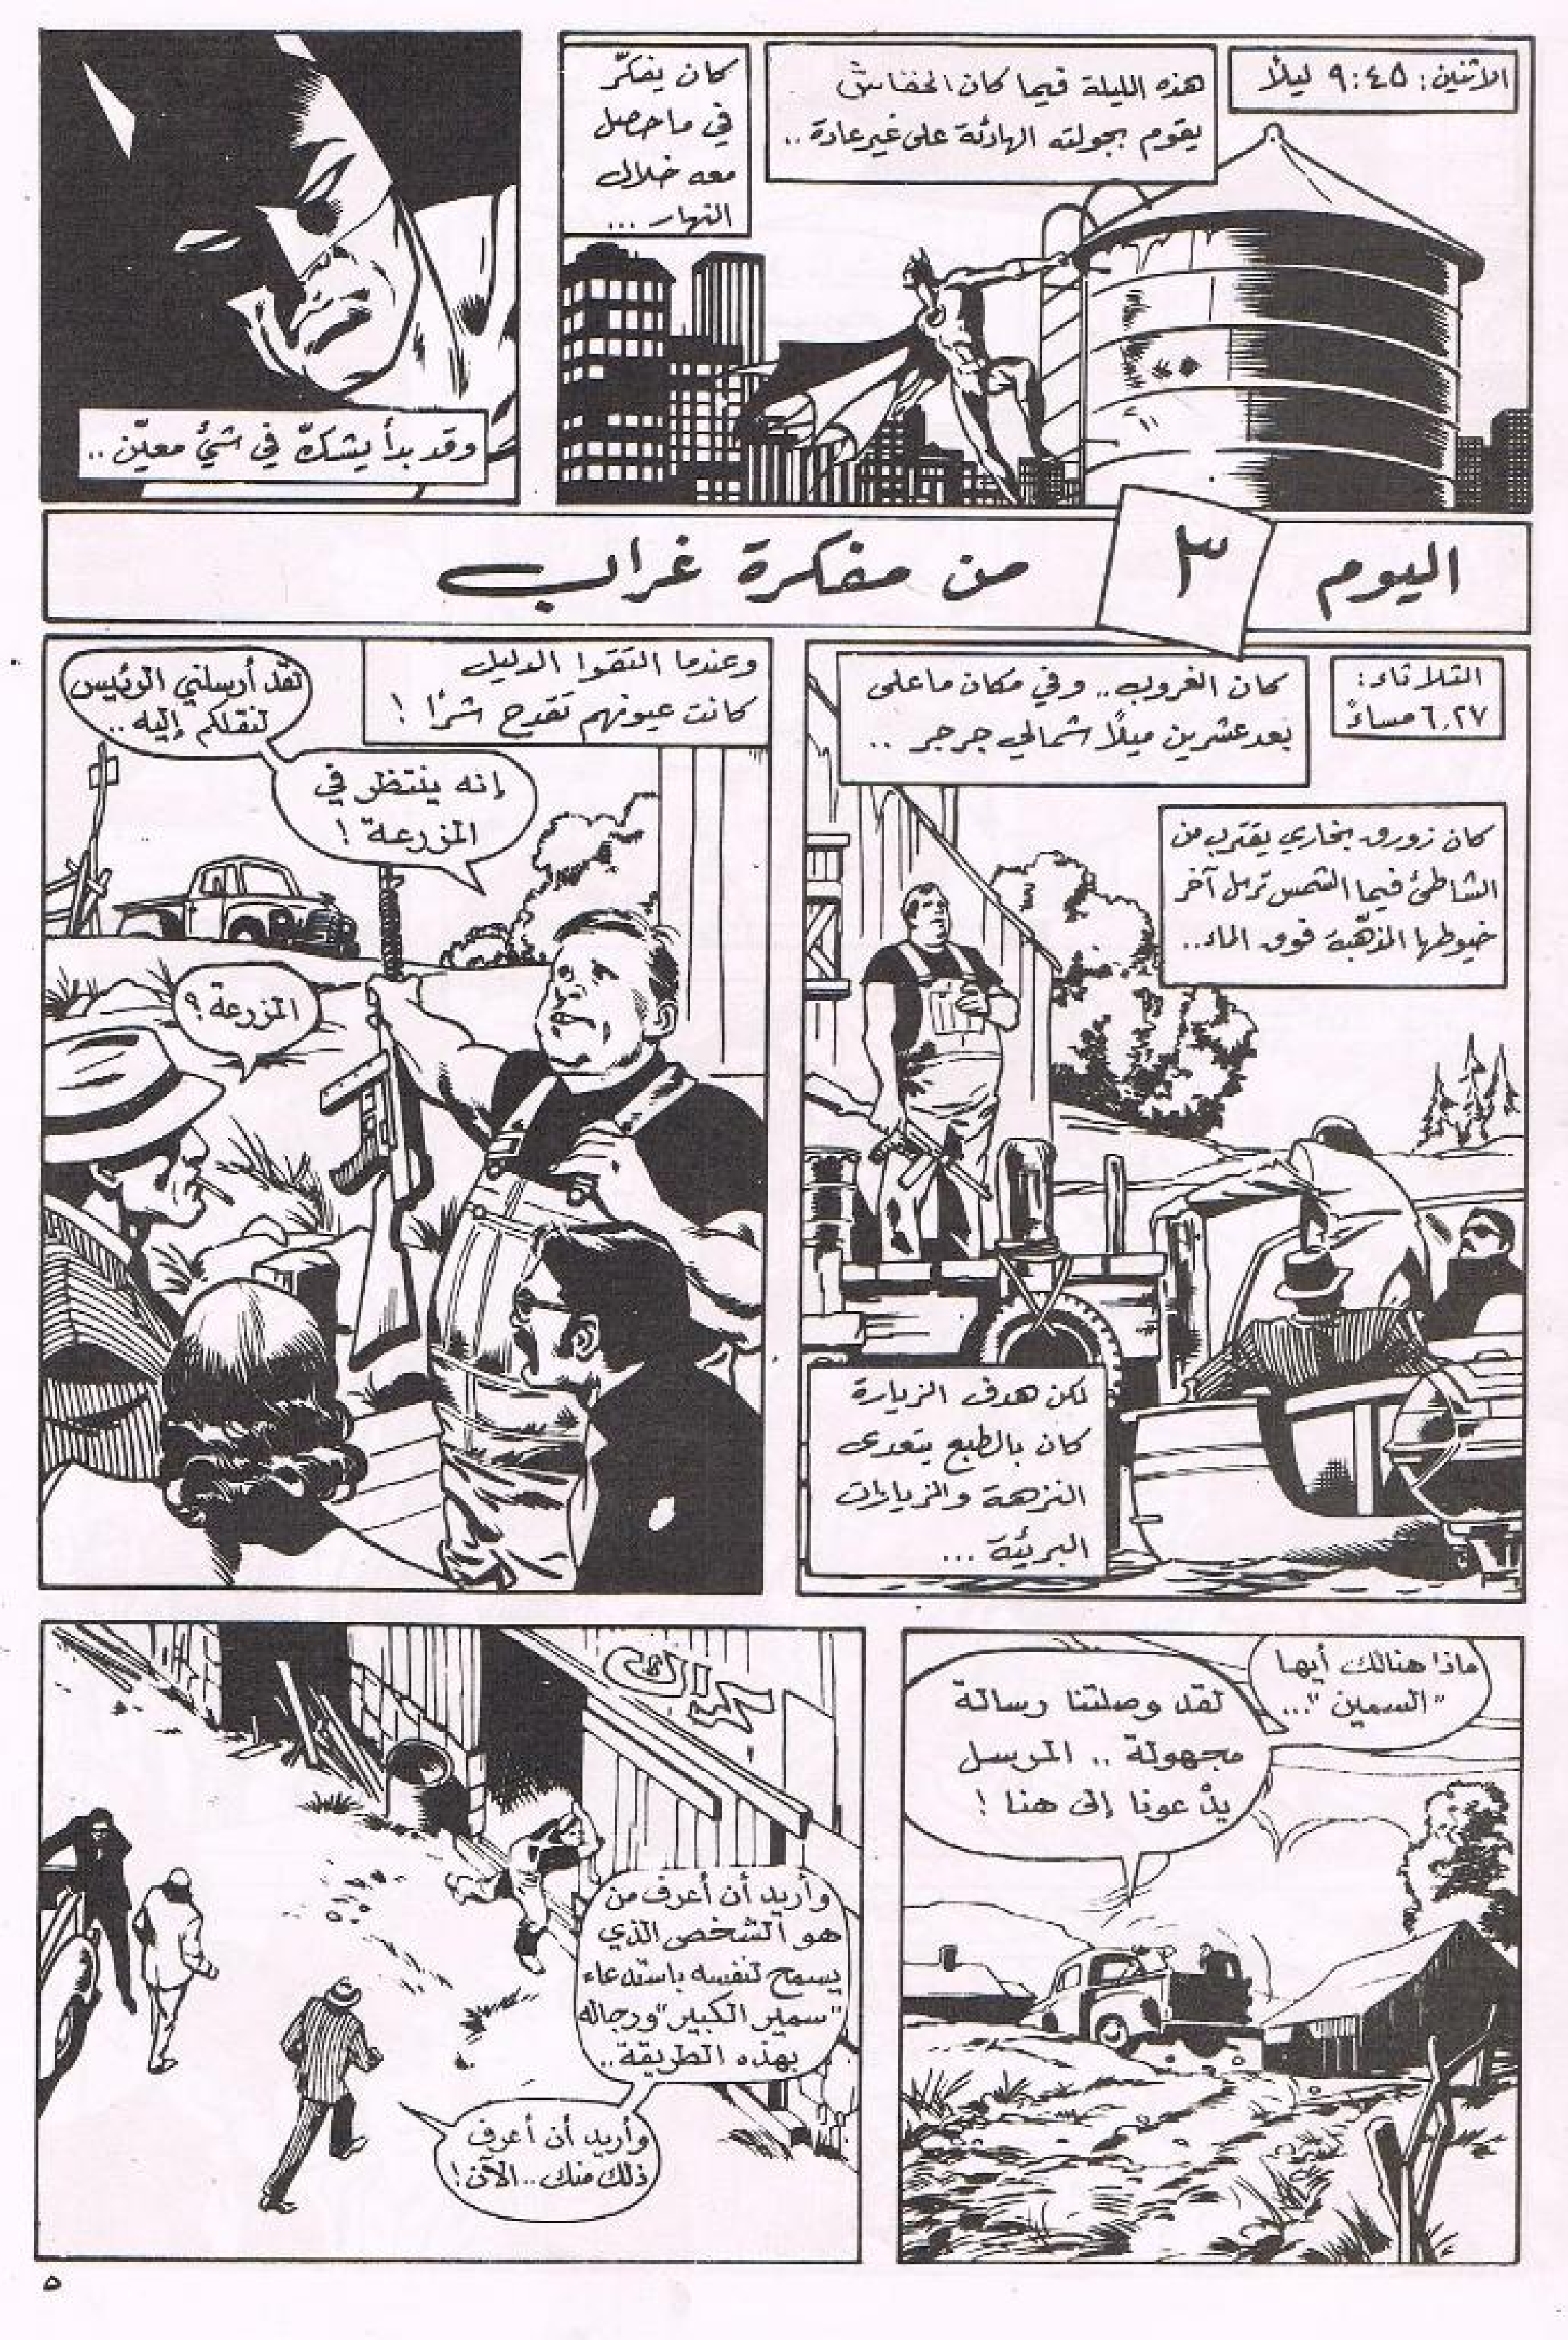 الاثنين: ٩:٤٥ ليلاً
هذه الليلة فيما كان الخفاش
يقوم بجولته الهادئة على غير عادة..
كان يفكّر
في ما حصل
معه خلال
النهار ...
وقد بدأ يشكّ في شيءٍ معيّن..
اليوم ٣ من مفكرة غراب
الثلاثاء:
٦،٢٧ مساءً
كان الغروب.. وفي مكان ما على
بعد عشرين ميلاً شمالي جرجر ..
كان زورق بخاري يقترب من
الشاطئ فيما الشمس ترمل آخر
خيوطها المذهّبة فوق الماء..
لكن هدف الزيارة
كان بالطبع يتعدى
النزهة والزيارات
البريئة ...
وعندما التقوا الدليل
كانت عيونهم تقدح شرًا !
لقد أرسلني الرئيس
لنقلكم إليه..
إنه ينتظر في
المزرعة !
المزرعة ؟
ماذا هنالك أيها
"السمين"...
لقد وصلتنا رسالة
مجهولة .. المرسل
يدعونا إلى هنا !
وأريد أن أعرف من
هو الشخص الذي
يسمح لنفسه باستدعاء
"سمير الكبير" ورجاله
بهذه الطريقة..
وأريد أن أعرف
ذلك منك.. الآن!
٥